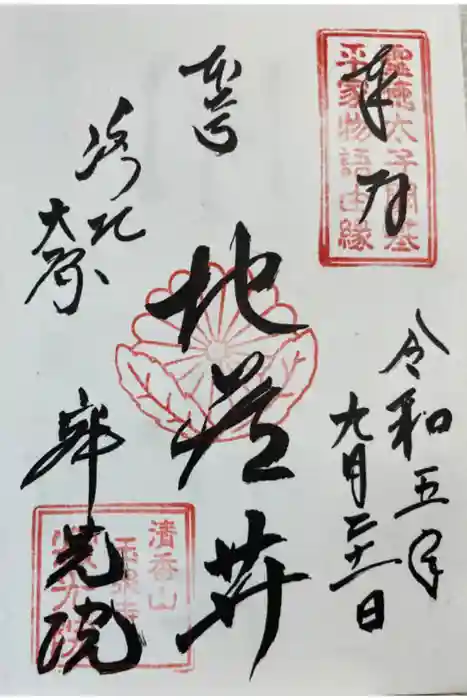 奉拝
聖徳太子開基
平家物語由緣
令和五年
九月二十一日
本尊
地蔵𦬇
洛北
大原
寂光院
清香山
玉泉寺
寂光院